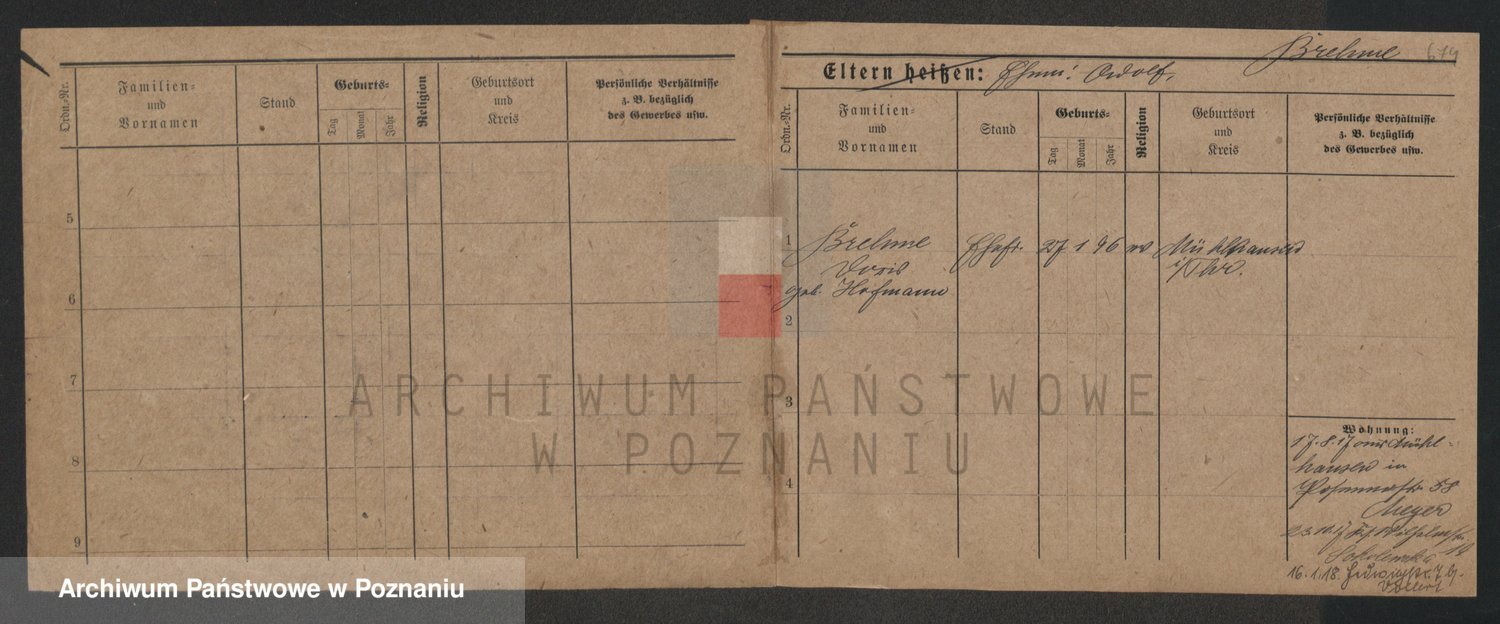 Ordn.-Nr.
Familien-
und
Vornamen
Stand
Geburts-
Tag
Monat
Jahr
Religion
Geburtsort
und
Kreis
Persönliche Verhältnisse
z. B. bezüglich
des Gewerbes usw.
5
6
7
8
9
Brehme
Eltern heißen: Ehem: Adolf.
Ordn.-Nr.
Familien-
und
Vornamen
Stand
Geburts-
Tag
Monat
Jahr
Religion
Geburtsort
und
Kreis
Persönliche Verhältnisse
z. B. bezüglich
des Gewerbes usw.
1
Brehme Ehefr. 27 1 96 ev Mühlhausen
Doris i/Thr.
geb. Hofmann
2
3
4
Wohnung:
17.8.17 aus Mühl-
hausen in
58
Meyer
14
16.1.18. 7
ARCHIWUM PAŃSTWOWE
W POZNANIU
Archiwum Państwowe w Poznaniu